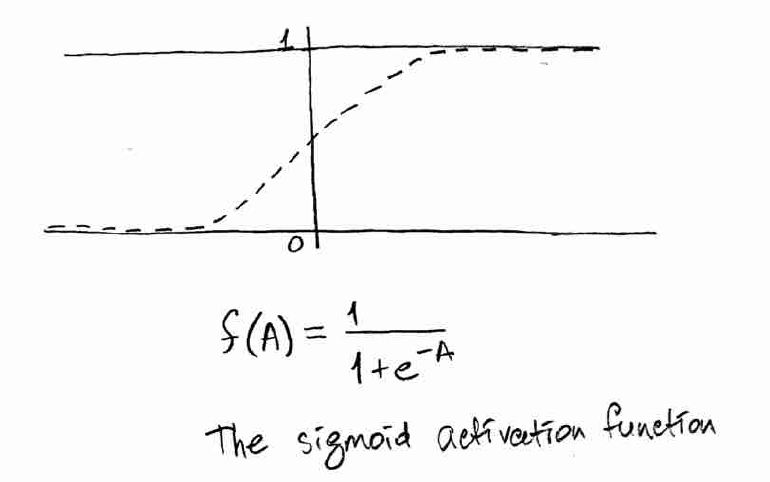 1
0
f(A) = 1 / 1+e^-A
The sigmoid activation function